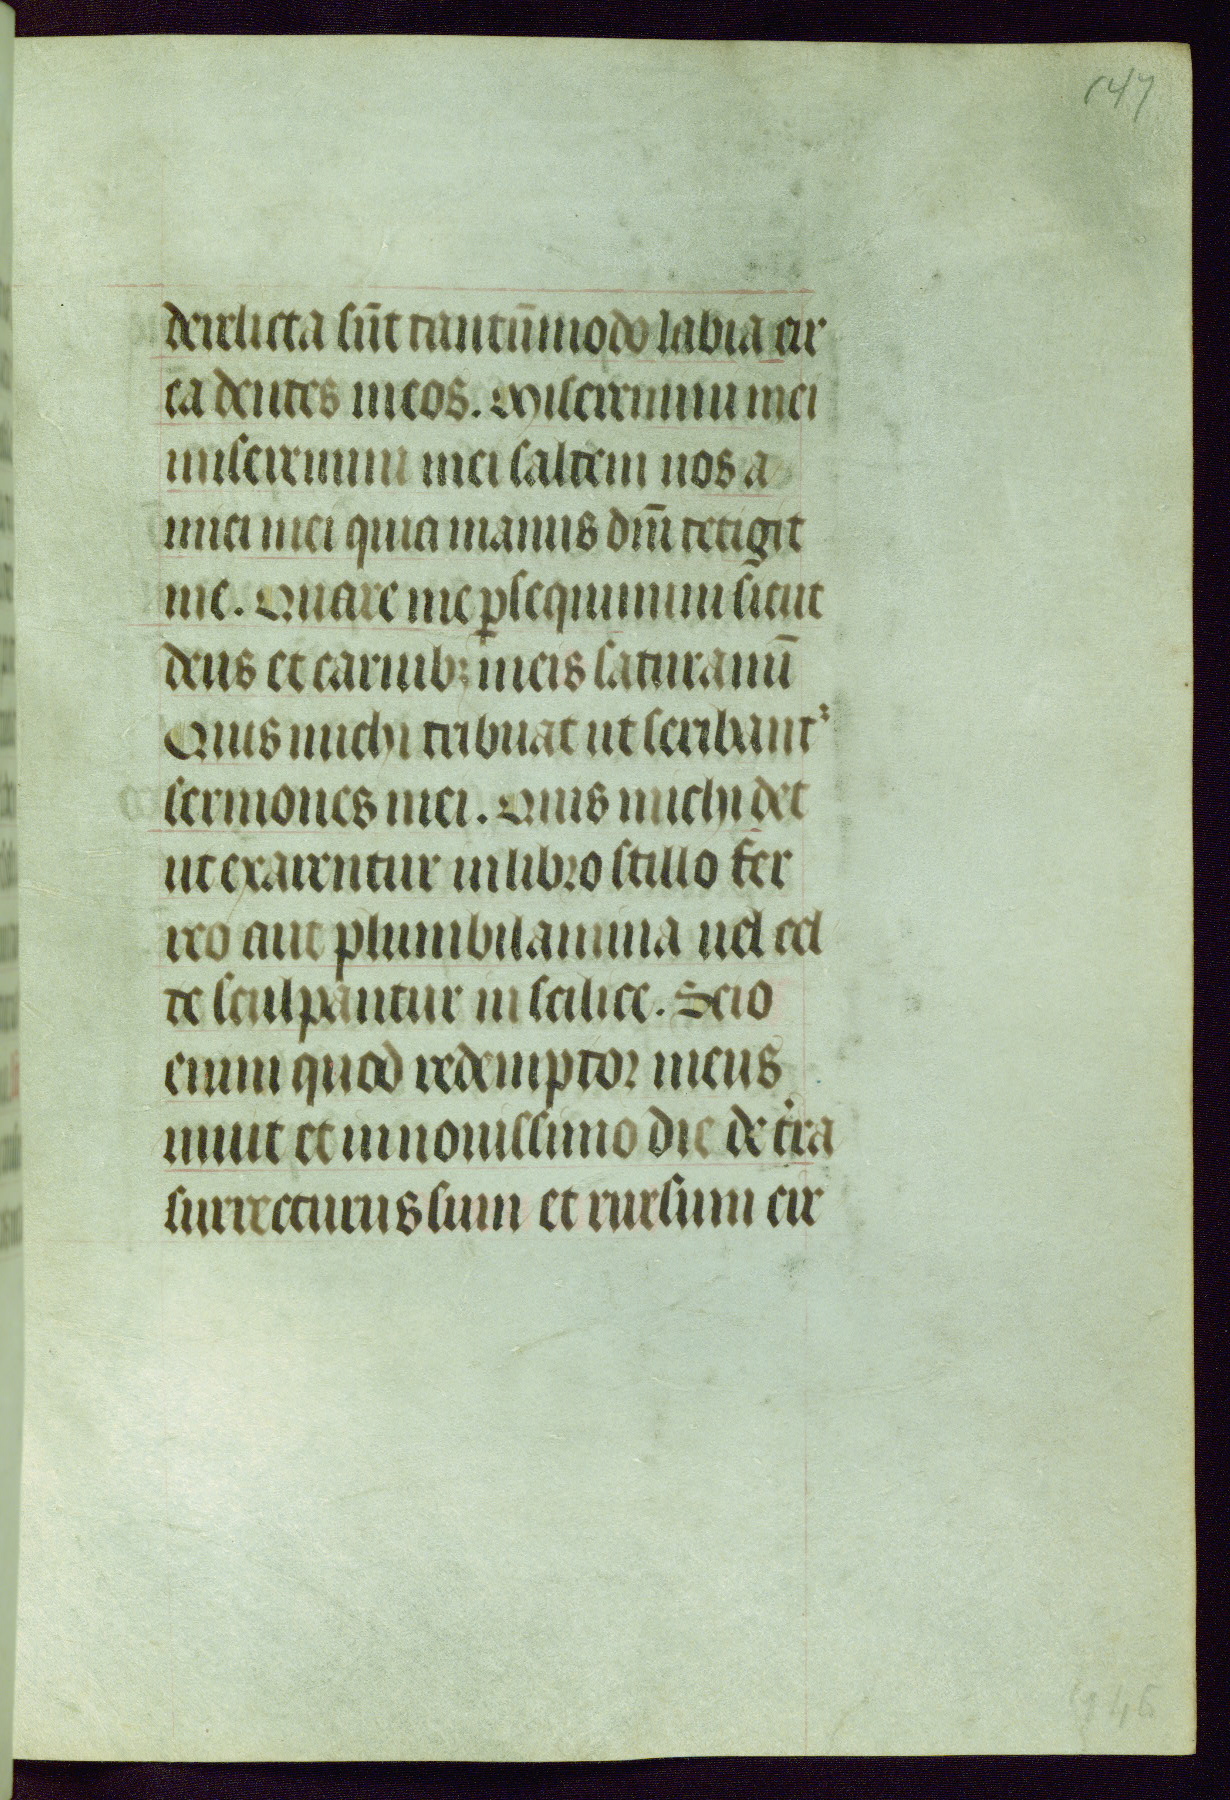 147
derelicta sūt tantūmodo labia cir
ca dentes meos. Miseremini mei
miseremini mei saltem uos a
mici mei quia manus dn̄i tetigit
me. Quare me ꝑsequimini sicut
deus et carnibꝫ meis saturamī
Quis michi tribuat ut scribant᷑
sermones mei. Quis michi det
ut exarentur in libro stillo fer
reo aut plumbi lamina uel cel
te sculpantur in scilice. Scio
enim quod redemptor meus
uiuit et in nouissimo die de t̄ra
surrecturus sum et rursum cir
146